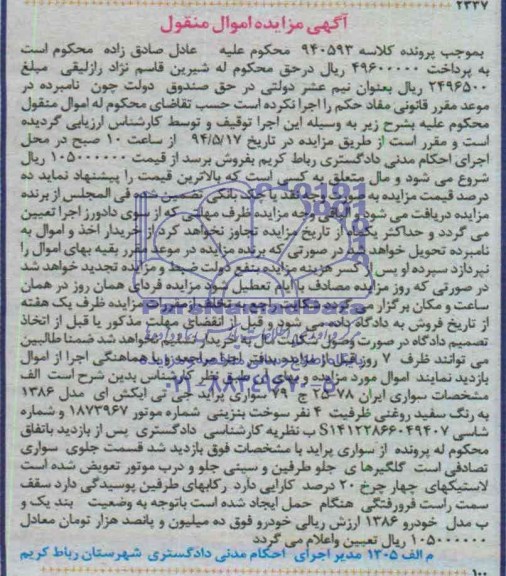 ۲۳۳۷
آگهی مزایده اموال منقول
بموجب پرونده کلاسه ۹۴۰۵۹۳ محکوم علیه عادل صادق زاده محکوم است
به پرداخت ۴۹۶۰۰۰۰۰ ریال درحق محکوم له شیرین قاسم نژاد رازلیقی مبلغ
۲۴۹۶۵۰۰ ریال بعنوان نیم عشر دولتی در حق صندوق دولت چون نامبرده در
موعد مقرر قانونی مفاد حکم را اجرا نکرده است حسب تقاضای محکوم له اموال منقول
محکوم علیه بشرح زیر به وسیله این اجرا توقیف و توسط کارشناس ارزیابی گردیده
است و مقرر است از طریق مزایده در تاریخ ۹۴/۵/۱۷ از ساعت ۱۰ صبح در محل
اجرای احکام مدنی دادگستری رباط کریم بفروش برسد از قیمت ۱۰۵۰۰۰۰۰۰ ریال
شروع می شود و مال متعلق به کسی است که بالاترین قیمت را پیشنهاد نماید ده
درصد قیمت مزایده به صورت وجه نقد یا چک بانکی تضمین شده فی المجلس از برنده
مزایده دریافت می شود و الباقی وجه مزایده ظرف مهلتی که از سوی دادورز اجرا تعیین
می گردد و حداکثر یکماه از تاریخ مزایده تجاوز نخواهد کرد از خریدار اخذ و اموال به
نامبرده تحویل خواهد شد در صورتی که برنده مزایده در موعد مقرر بقیه بهای اموال را
نپردازد سپرده او پس از کسر هزینه مزایده بنفع دولت ضبط و مزایده تجدید خواهد شد
در صورتی که روز مزایده مصادف با ایام تعطیل شود مزایده فردای همان روز در همان
ساعت و مکان برگزار می گردد شکایت راجع به تخلف از مقررات مزایده ظرف یک هفته
از تاریخ فروش به دادگاه داده می شود و قبل از انقضای مهلت مذکور یا قبل از اتخاذ
تصمیم دادگاه در صورت وصول شکایت مال به خریدار تسلیم نخواهد شد ضمنا طالبین
می توانند ظرف ۷ روز قبل از مزایده بدفتر اجرا مراجعه و با هماهنگی اجرا از اموال
بازدید نمایند اموال مورد مزایده و بهای آن طبق نظر کارشناس بدین شرح است الف
مشخصات سواری ایران ۷۸-۲۵ ج ۷۹ سواری پراید جی تی ایکس ای مدل ۱۳۸۶
به رنگ سفید روغنی ظرفیت ۴ نفر سوخت بنزینی شماره موتور ۱۸۷۳۹۶۷ و شماره
شاسی S۱۴۱۲۲۸۶۶۰۴۹۴۰۷ ب نظریه کارشناسی دادگستری پس از بازدید باتفاق
محکوم له پرونده از سواری پراید با مشخصات فوق بازدید شد قسمت جلوی سواری
تصادفی است گلگیرهای جلو طرفین و سینی جلو و درب موتور تعویض شده است
لاستیکهای چهار چرخ ۲۰ درصد کارایی دارد رکابهای طرفین پوسیدگی دارد سقف
سمت راست فرورفتگی هنگام حمل ایجاد شده است باتوجه به وضعیت بند یک و
ب مدل خودرو ۱۳۸۶ ارزش ریالی خودرو فوق ده میلیون و پانصد هزار تومان معادل
۱۰۵۰۰۰۰۰۰ ریال تعیین واعلام می گردد
م الف ۱۳۰۵ مدیر اجرای احکام مدنی دادگستری شهرستان رباط کریم
ParsNamadData
۰۲۱-۸۸۳۴۹۶۷۰-۵